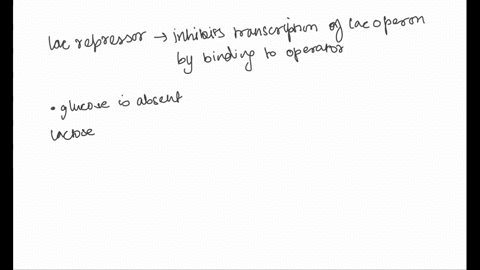 lac repressor → inhibits transcription of lac operon
by binding to operator
• glucose is absent
lactose